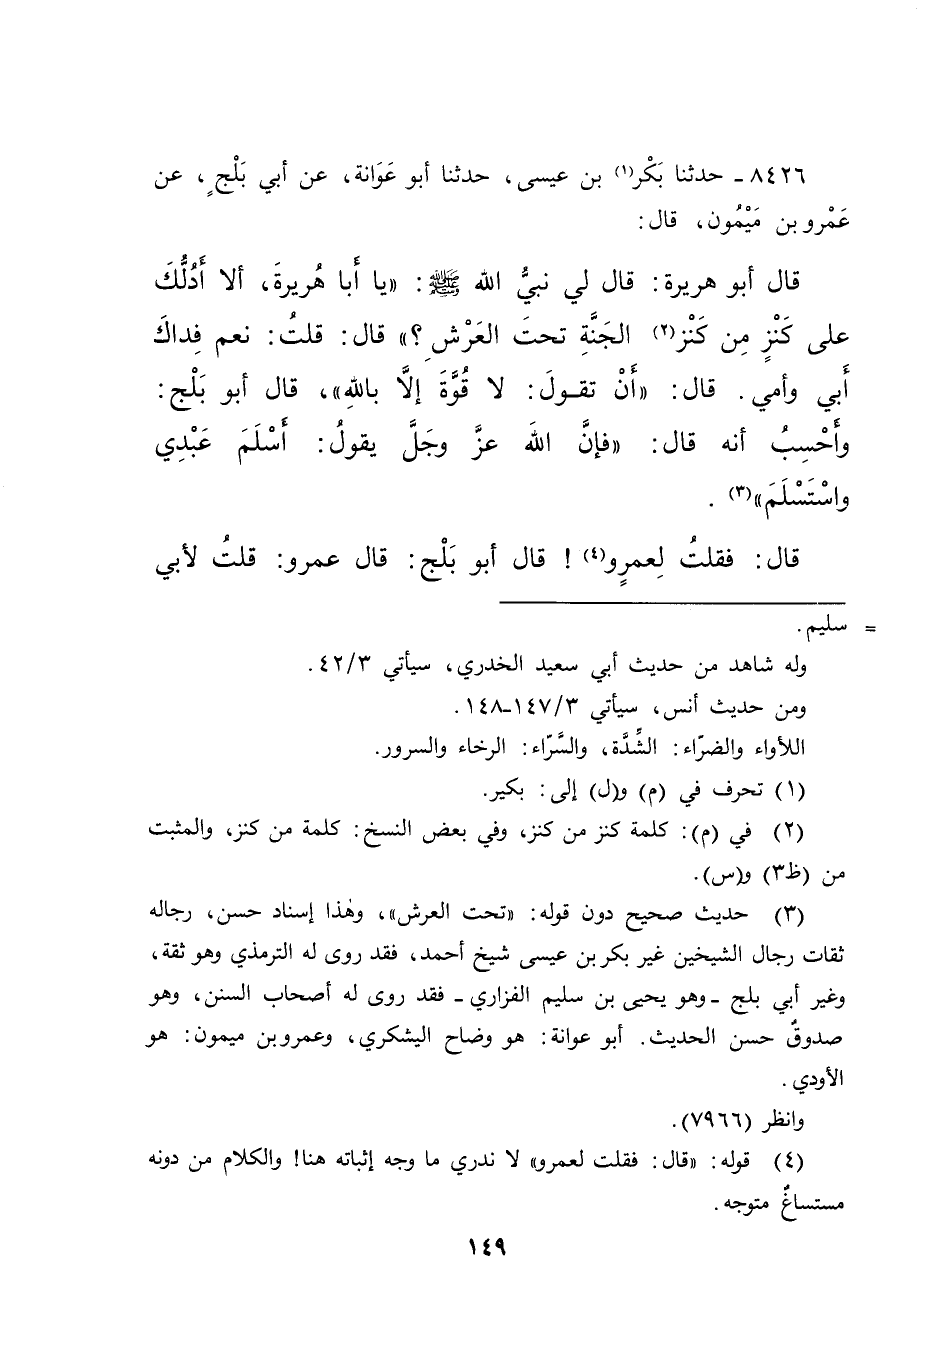 ٨٤٢٦ ـ حدثنا بَكْر(١) بن عيسى، حدثنا أبو عَوَانة، عن أبي بَلْجٍ، عن
عَمْرو بن مَيْمُون، قال:
قال أبو هريرة: قال لي نبيُّ الله ﷺ: «يا أَبا هُريرةَ، ألا أَدُلُّكَ
على كَنْزٍ مِن كَنْز(٢) الجَنَّةِ تحتَ العَرْشِ؟» قال: قلتُ: نعم فِداكَ
أَبي وأمي. قال: «أَنْ تقـولَ: لا قُوَّةَ إلَّا باللهِ»، قال أبو بَلْج:
وأَحْسِبُ أنه قال: «فإنَّ اللهَ عزَّ وجَلَّ يقولُ: أَسْلَمَ عَبْدِي
واسْتَسْلَمَ»(٣).
قال: فقلتُ لِعمرٍو(٤)! قال أبو بَلْج: قال عمرو: قلتُ لأبي
= سليم.
وله شاهد من حديث أبي سعيد الخدري، سيأتي ٤٢/٣.
ومن حديث أنس، سيأتي ١٤٧/٣-١٤٨.
اللأواء والضرّاء: الشِّدَّة، والسَّرّاء: الرخاء والسرور.
(١) تحرف في (م) و(ل) إلى: بكير.
(٢) في (م): كلمة كنز من كنز، وفي بعض النسخ: كلمة من كنز، والمثبت
من (ظ٣) و(س).
(٣) حديث صحيح دون قوله: «تحت العرش»، وهٰذا إسناد حسن، رجاله
ثقات رجال الشيخين غير بكر بن عيسى شيخ أحمد، فقد روى له الترمذي وهو ثقة،
وغير أبي بلج ـ وهو يحيى بن سليم الفزاري ـ فقد روى له أصحاب السنن، وهو
صدوقٌ حسن الحديث. أبو عوانة: هو وضاح اليشكري، وعمرو بن ميمون: هو
الأودي.
وانظر (٧٩٦٦).
(٤) قوله: «قال: فقلت لعمرو» لا ندري ما وجه إثباته هنا! والكلام من دونه
مستساغٌ متوجه.
١٤٩